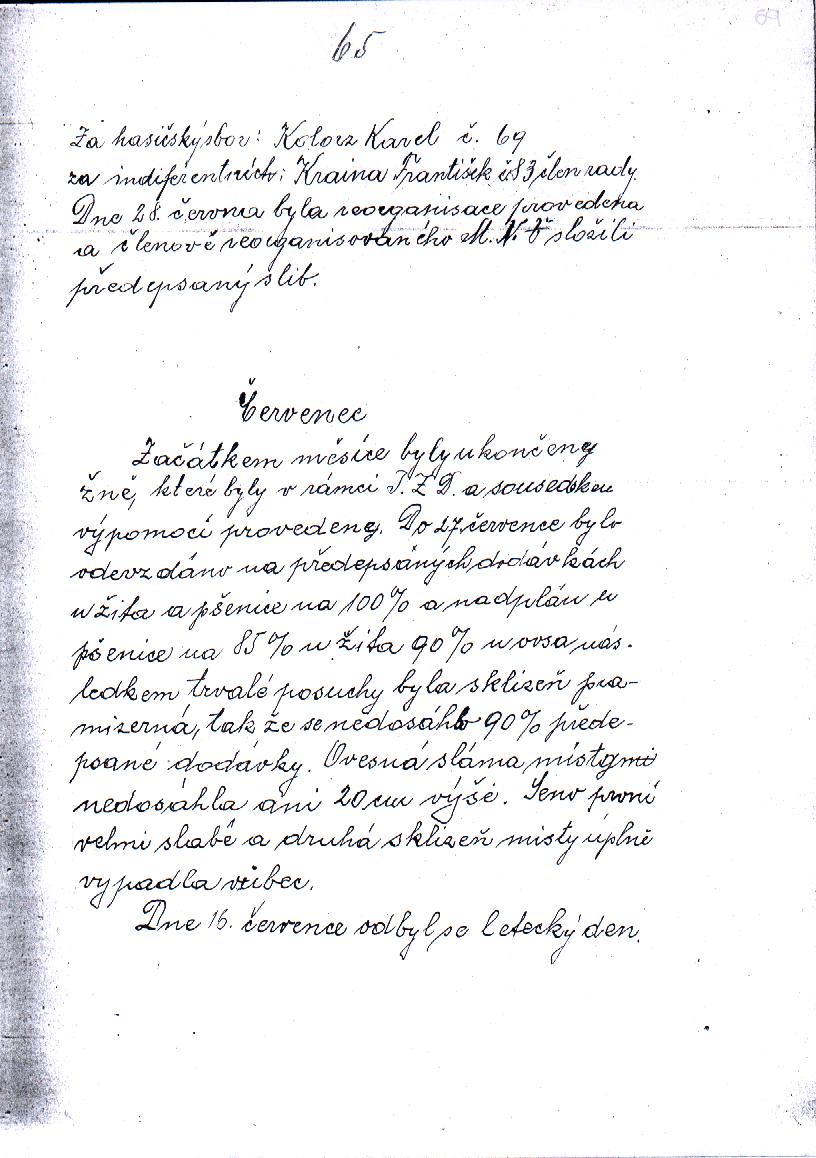 69
65
Za hasičský sbor: Kolorz Karel č. 69
za indiferentních: Kraina František č 83 člen rady.
Dne 28. června byla reorganisace provedena
a členové reorganisovaného M. N. V složili
předepsaný slib.
Červenec
Začátkem měsíce byly ukončeny
žně, které byly v rámci J. Z D. a sousedskou
výpomocí provedeny. Do 27. července bylo
odevzdáno na předepsaných dodávkách
u žita a pšenice na 100% a nadplán u
pšenice na 85% u žita 90% u ovsa nás-
ledkem trvalé posuchy byla sklizeň pra-
mizerná, tak že se nedosáhlo 90% přede-
psané dodávky. Ovesná sláma místy
nedosáhla ani 20 cm výše. Seno první
velmi slabé a druhá sklizeň misty úplně
vypadla vůbec.
Dne 16. července odbyl se letecký den.